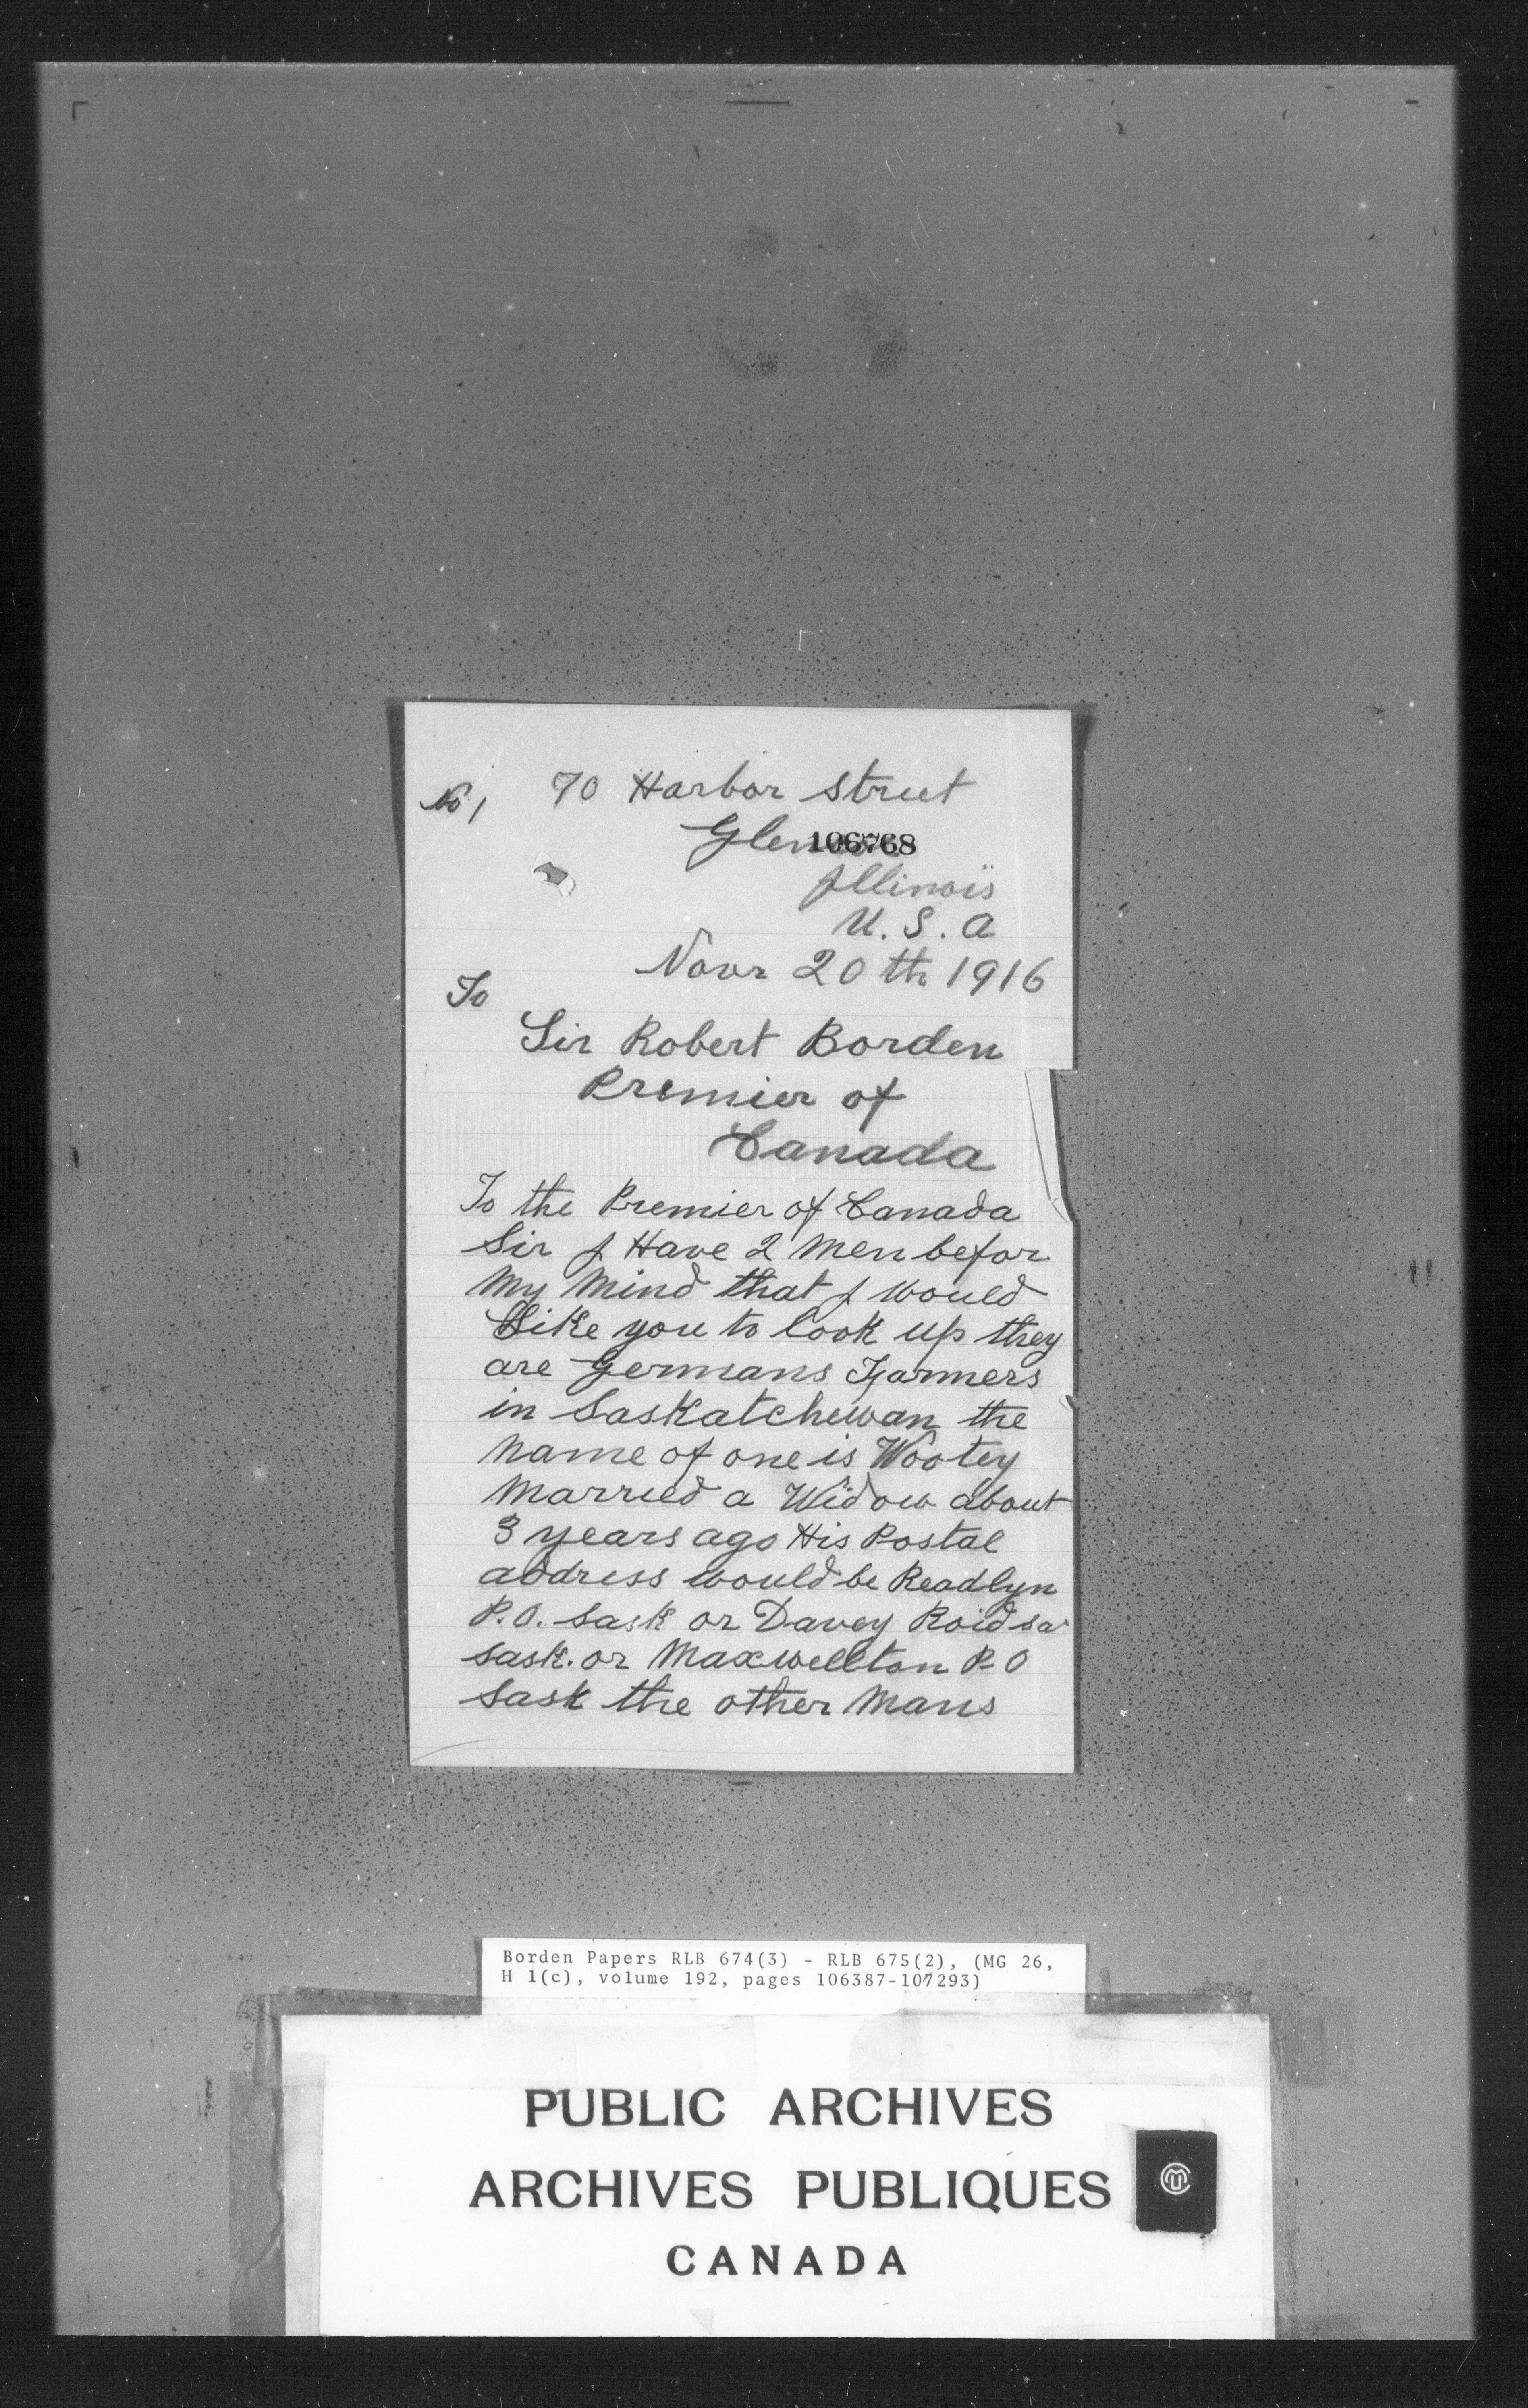 No 1 70 Harbor Street
Glen
106768
Illinois
U. S. A
Novr 20th 1916
To
Sir Robert Borden
Premier of
Canada
To the Premier of Canada
Sir I Have 2 Men befor
My Mind that I would
Like you to look up they
are Germans Farmers
in Saskatchewan the
Name of one is Wootey
Married a Widow about
3 years ago His Postal
address would be Readlyn
P.O. Sask or Davey Roid
Sask. or Maxwellton P-O
Sask the other Mans
Borden Papers RLB 674(3) - RLB 675(2), (MG 26,
H 1(c), volume 192, pages 106387-107293)
PUBLIC ARCHIVES
ARCHIVES PUBLIQUES
CANADA